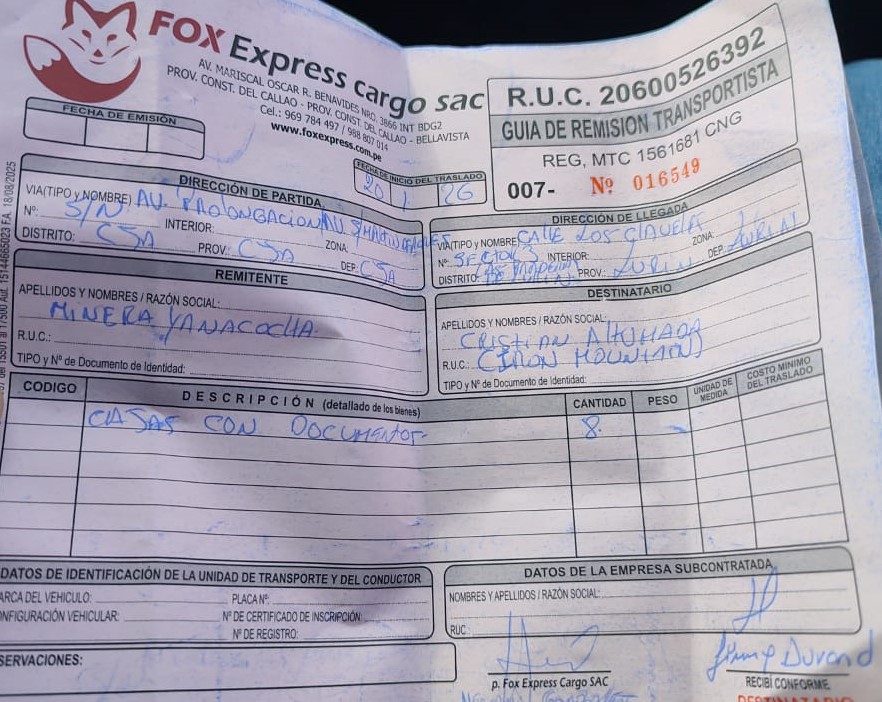 FOX Express cargo sac
AV. MARISCAL OSCAR R. BENAVIDES NRO. 3866 INT BDG2
PROV. CONST. DEL CALLAO - PROV. CONST. DEL CALLAO - BELLAVISTA
Cel.: 969 784 497 / 988 807 014
www.foxexpress.com.pe
R.U.C. 20600526392
GUIA DE REMISION TRANSPORTISTA
REG, MTC 1561681 CNG
007- Nº 016549
FECHA DE EMISIÓN
FECHA DE INICIO DEL TRASLADO
20 1 26
DIRECCIÓN DE PARTIDA
VIA(TIPO y NOMBRE) AV.
Nº: S/N INTERIOR: ZONA:
DISTRITO: CJA PROV.: CJA DEP.: CJA
DIRECCIÓN DE LLEGADA
VIA(TIPO y NOMBRE) CALLE LOS
Nº: INTERIOR: ZONA:
DISTRITO: PROV.: LURIN DEP.: LURIN
REMITENTE
APELLIDOS Y NOMBRES / RAZÓN SOCIAL:
MINERA YANACOCHA
R.U.C.:
TIPO y Nº de Documento de Identidad:
DESTINATARIO
APELLIDOS Y NOMBRES / RAZÓN SOCIAL:
CRISTIAN AHUMADA
R.U.C.: (IRON MOUNTAIN)
TIPO y Nº de Documento de Identidad:
CODIGO DESCRIPCIÓN (detallado de los bienes) CANTIDAD PESO UNIDAD DE MEDIDA COSTO MINIMO DEL TRASLADO
CAJAS CON DOCUMENTOS 8
DATOS DE IDENTIFICACIÓN DE LA UNIDAD DE TRANSPORTE Y DEL CONDUCTOR
ARCA DEL VEHICULO: PLACA Nº:
NFIGURACIÓN VEHICULAR: Nº DE CERTIFICADO DE INSCRIPCIÓN:
Nº DE REGISTRO:
DATOS DE LA EMPRESA SUBCONTRATADA
NOMBRES Y APELLIDOS / RAZÓN SOCIAL:
RUC:
SERVACIONES:
p. Fox Express Cargo SAC
Durand
RECIBÍ CONFORME
DESTINATARIO